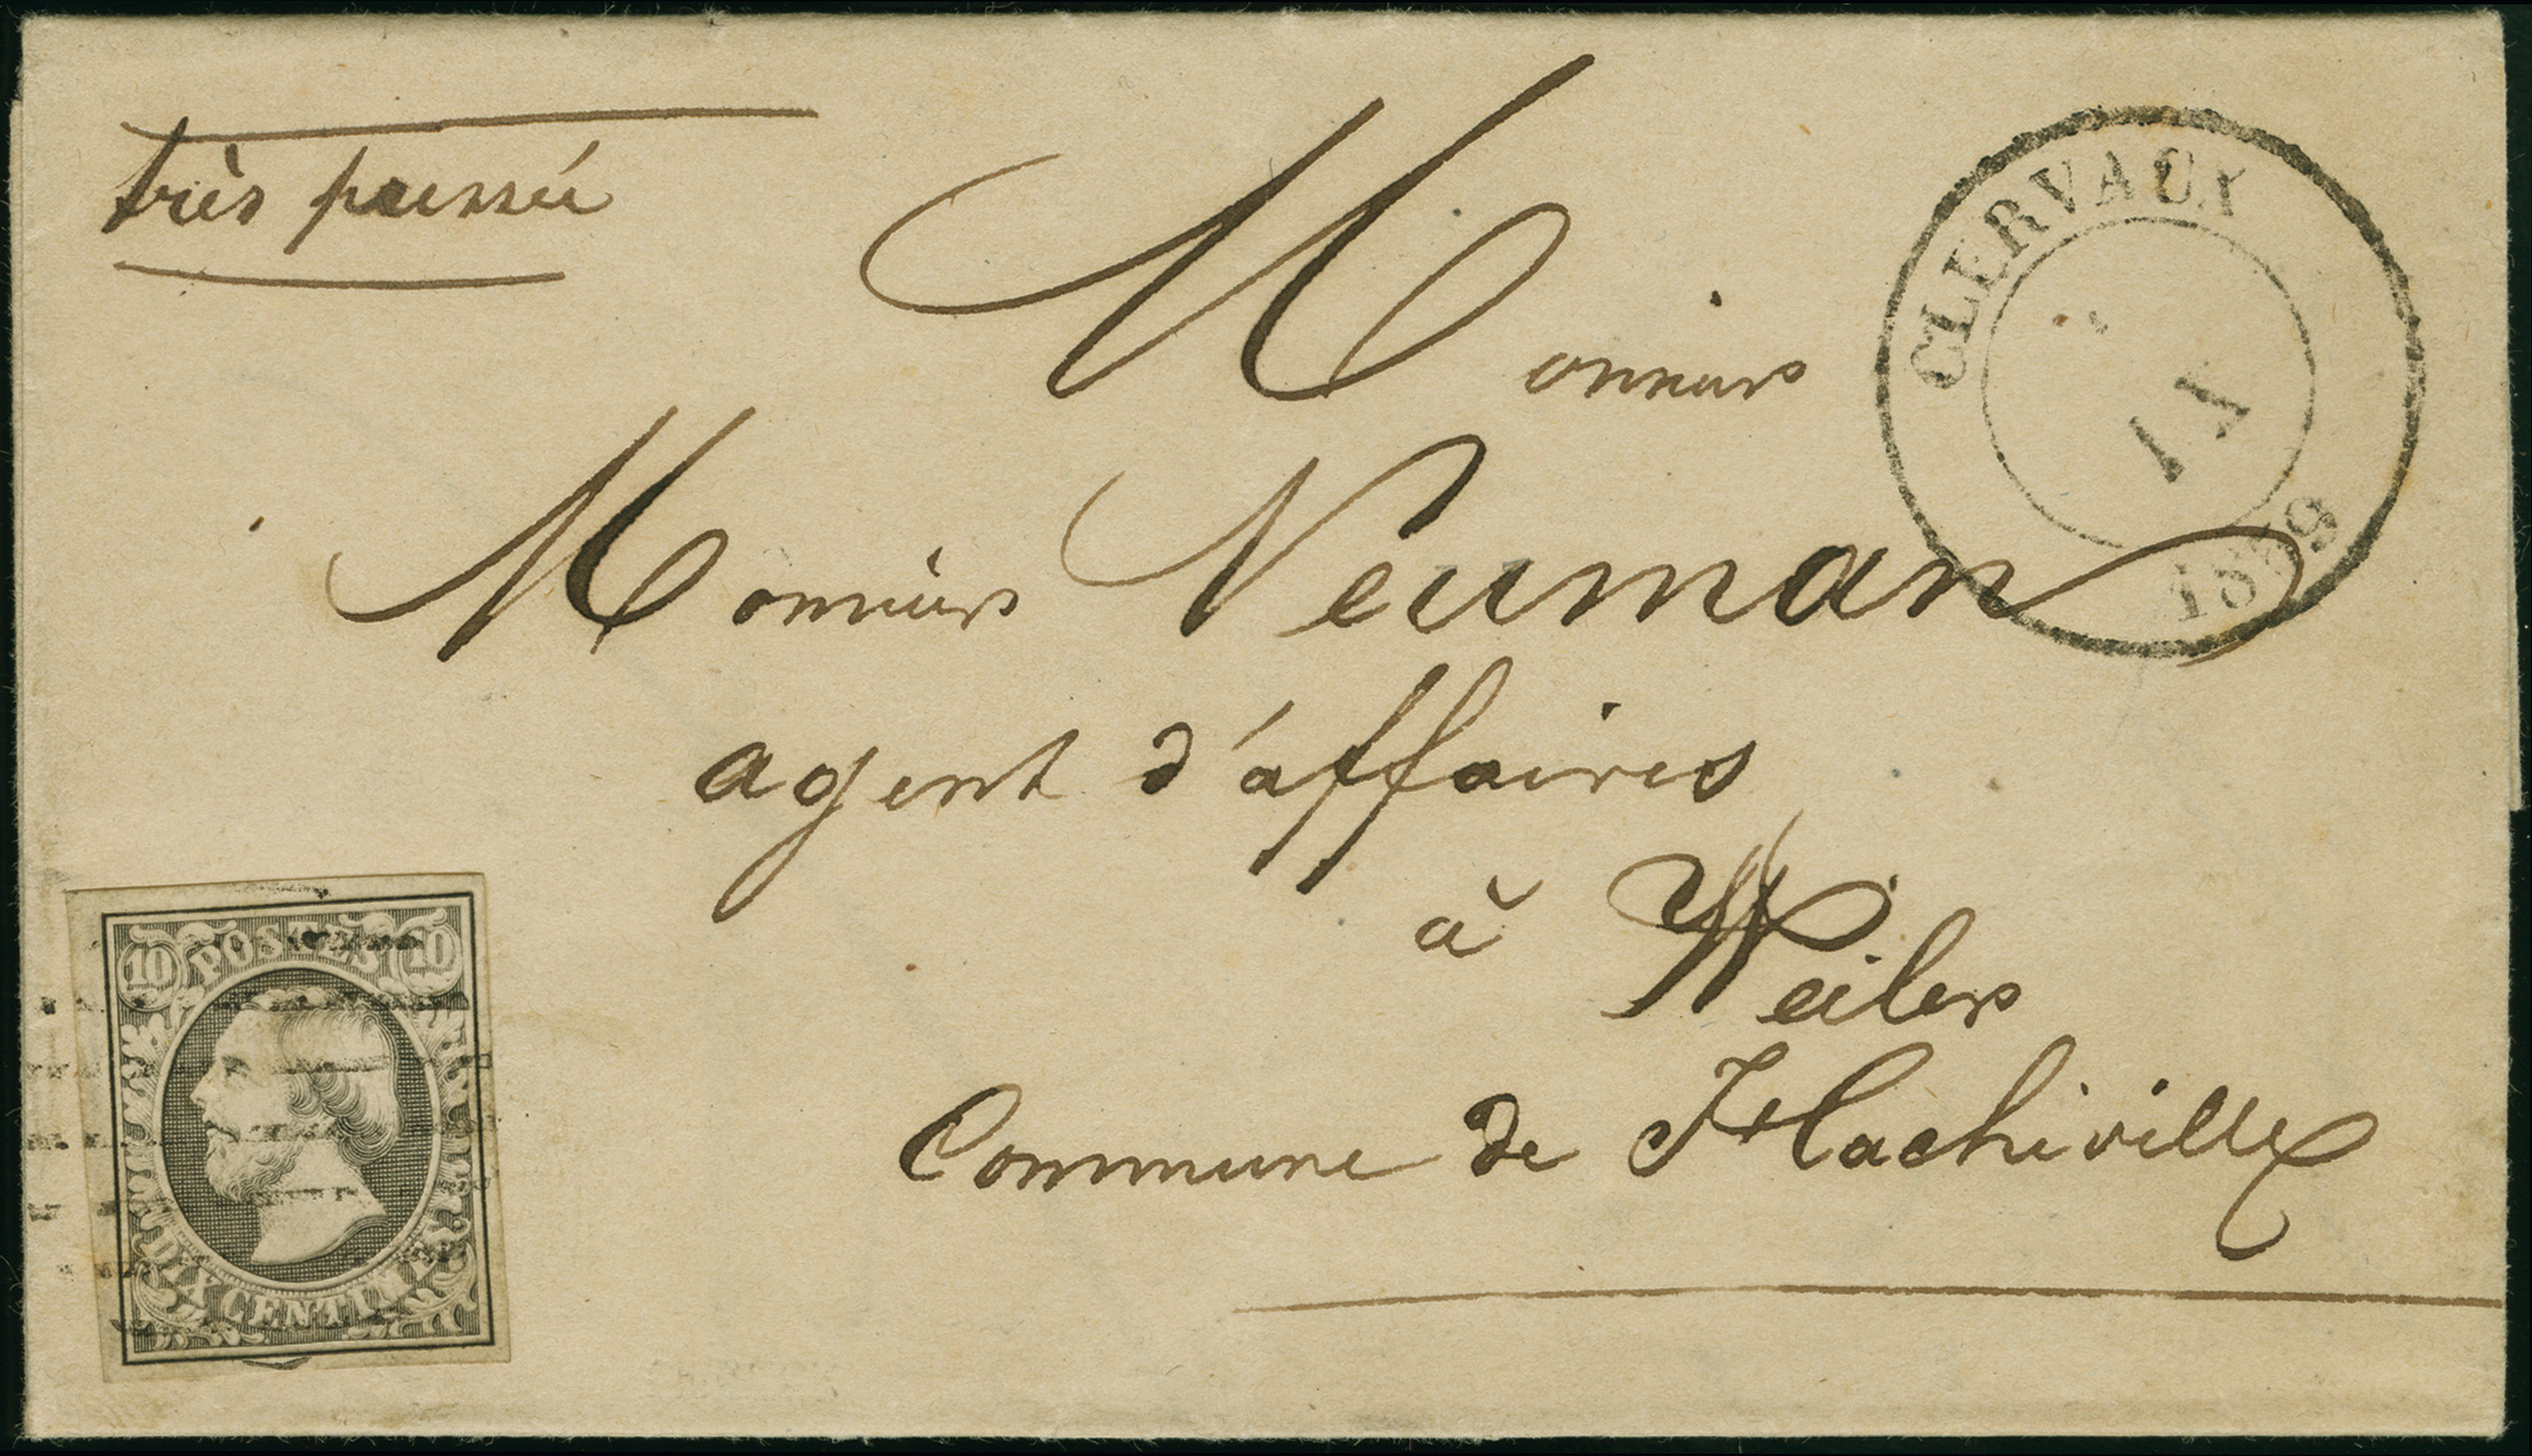 très pressée
Monsieur
Monsieur Neuman
agent d'affaires
à Weiler
Commune de Hachiville
CLERVAUX
1859
10 POSTES 10
DIX CENTIMES